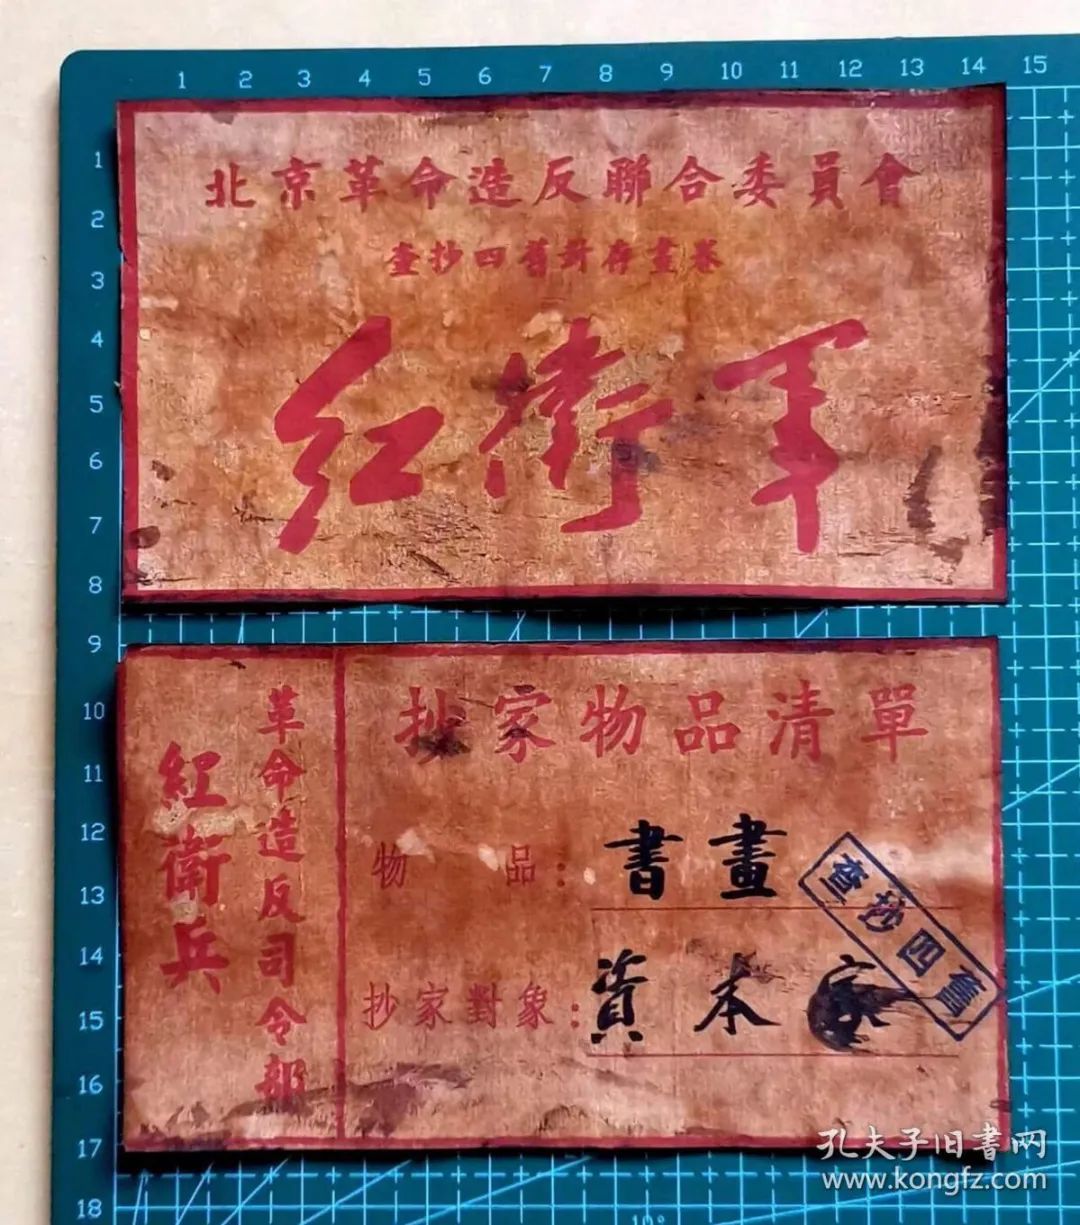 1 2 3 4 5 6 7 8 9 10 11 12 13 14 15
1
2
3
4
5
6
7
8
9
10
11
12
13
14
15
16
17
18
北京革命造反聯合委員會
查抄四舊封存畫卷
红衛军
革命造反司令部
紅衛兵
抄家物品清單
物品：書畫
抄家對象：資本家
查抄四舊
孔夫子旧书网
www.kongfz.com